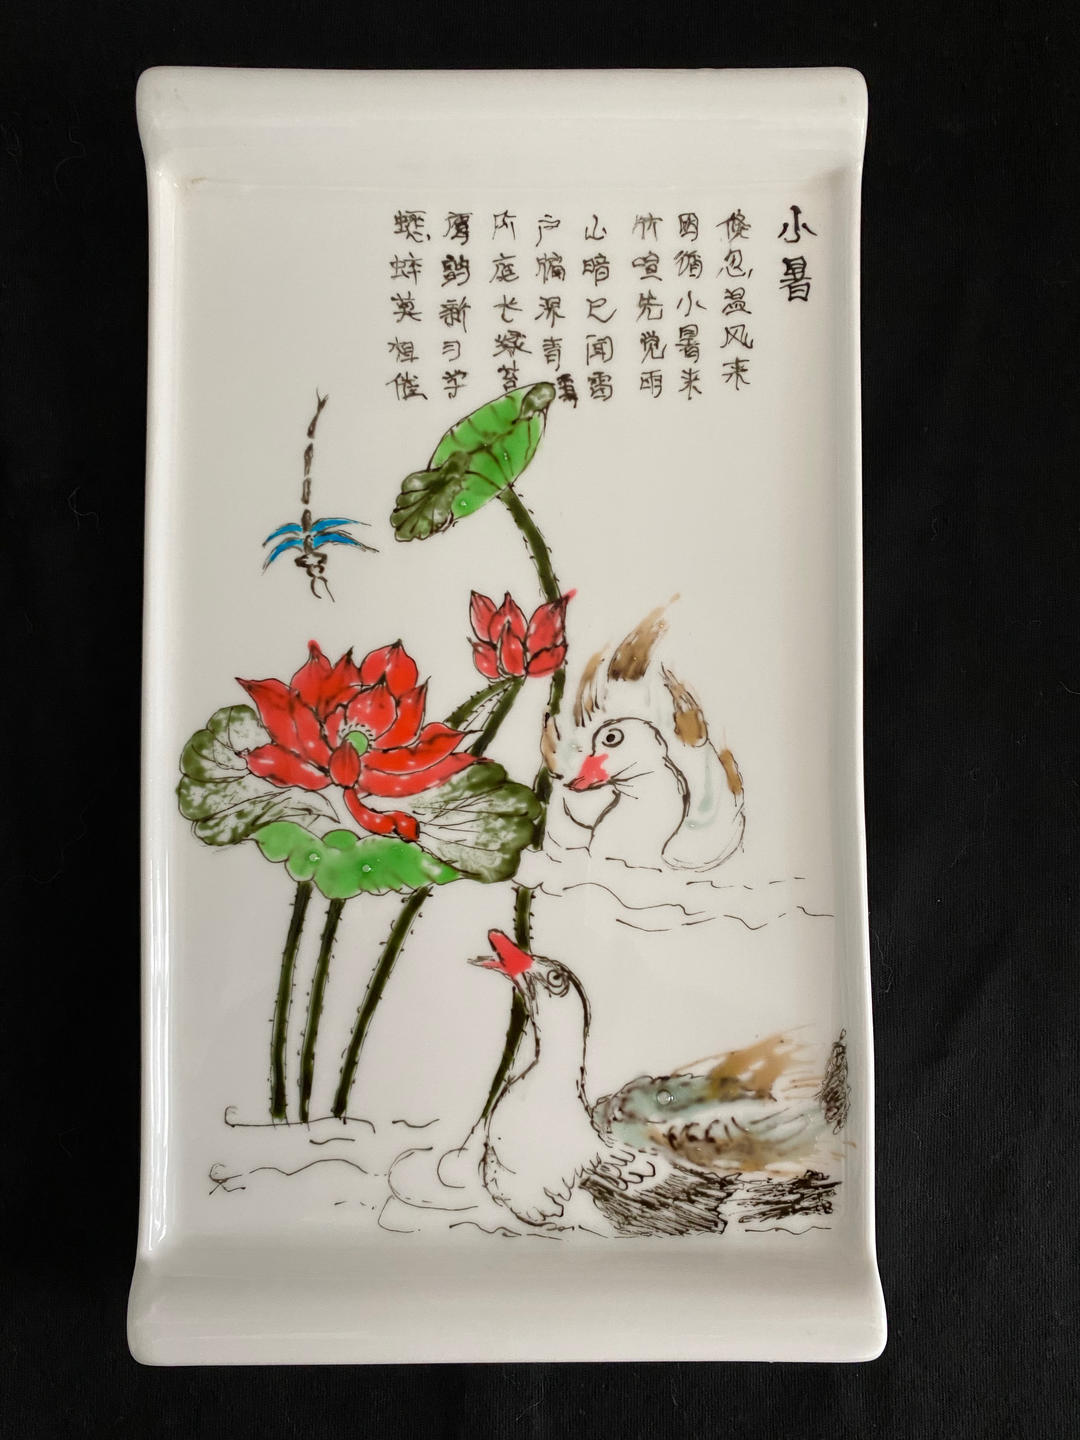 小暑
倏忽温风来
因循小暑来
竹喧先觉雨
山暗已闻雷
户牖深青霭
阶庭长绿苔
鹰鹯新习学
蟋蟀莫相催